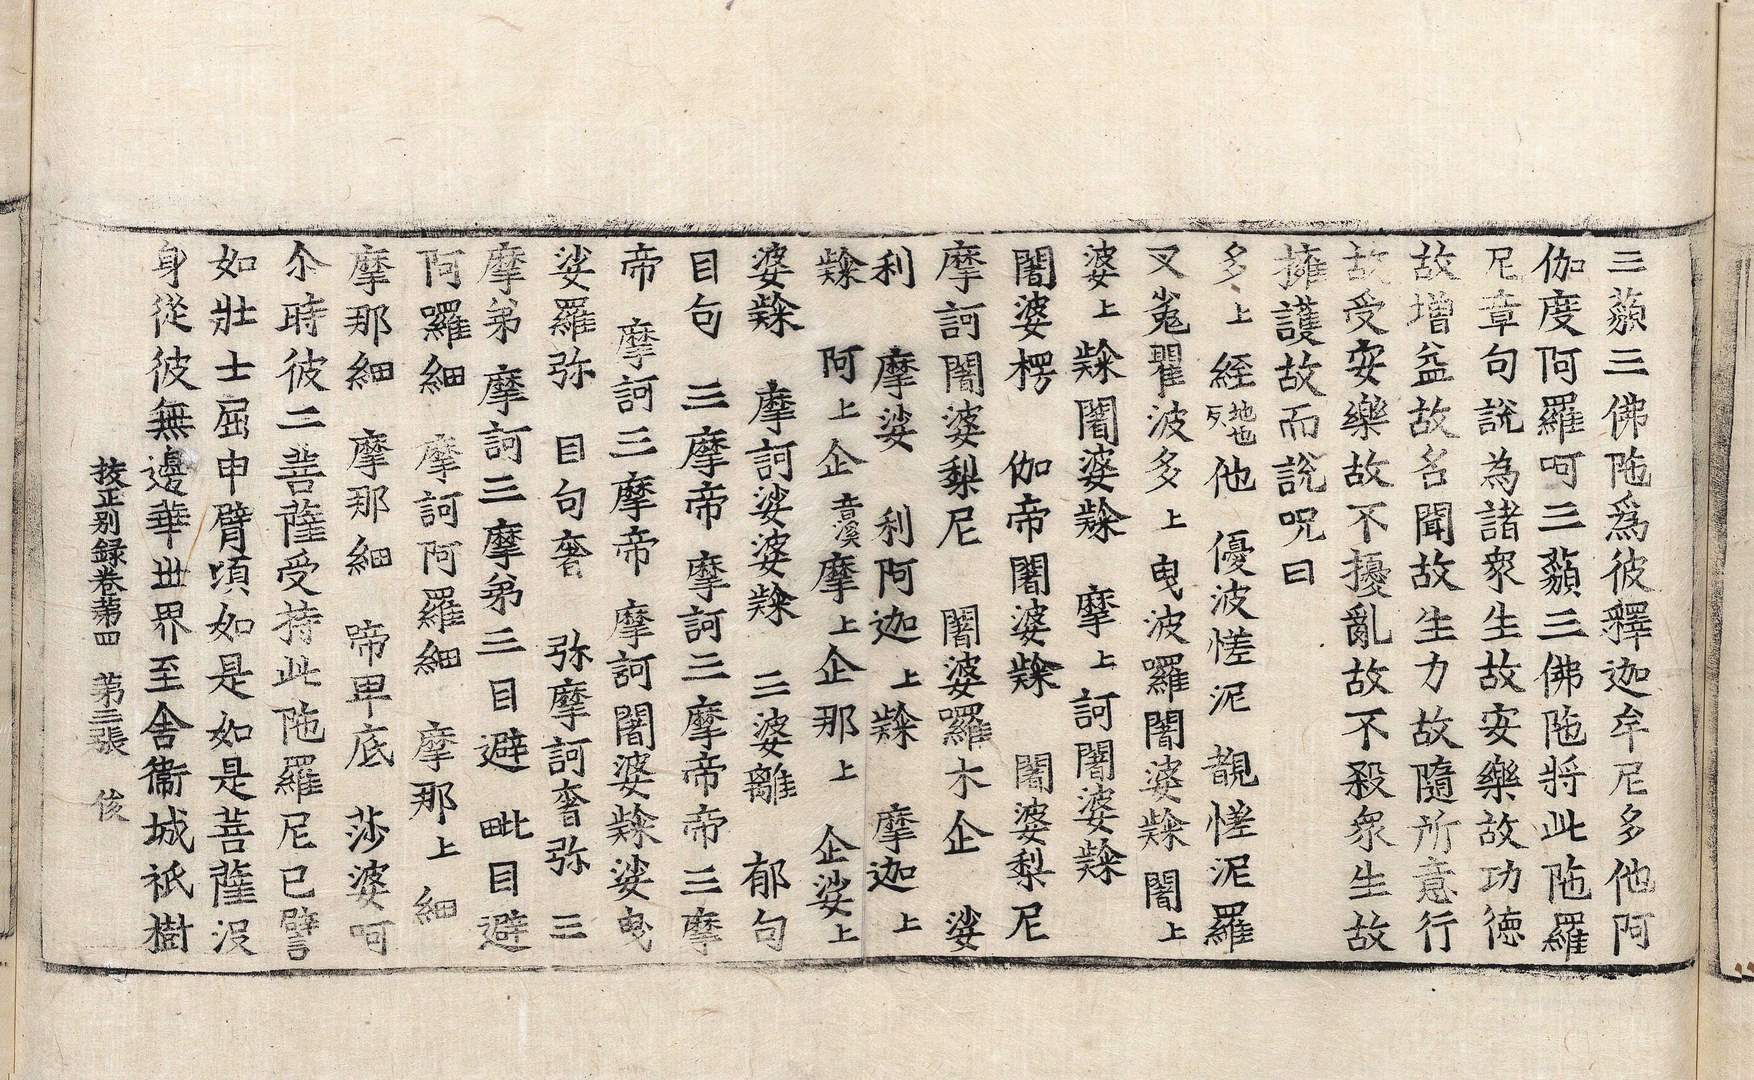 三藐三佛陁爲彼釋迦牟尼多他阿
伽度阿羅呵三藐三佛陁將此陁羅
尼章句說為諸衆生故安樂故功德
故增益故名聞故生力故隨所意行
故受安樂故不擾亂故不殺衆生故
擁護故而說呪曰
多上 經地也反 他 優波嗟泥 覩嗟泥羅
叉 瞿波多上 曳波囉闍婆隸闍上
婆上 隸闍婆隸 摩上 訶闍婆隸
闍婆楞 伽帝闍婆隸 闍婆梨尼
摩訶闍婆梨尼 闍婆囉木企 娑
利 摩娑 利阿迦上 隸 摩迦上
隸 阿上 企音溪 摩上 企那上 企娑上
婆隸 摩訶娑婆隸 三婆離 郁句
目句 三摩帝 摩訶三摩帝帝三摩
帝 摩訶三摩帝 摩訶闍婆隸娑曳
娑羅弥 目句奢 弥摩訶奢弥 三
摩弟 摩訶三摩弟三目避 毗目避
阿囉細 摩訶阿羅細 摩那上 細
摩那細 摩那細 啼卑底 莎婆呵
尒時彼二菩薩受持此陁羅尼已譬
如壯士屈申臂頃如是如是菩薩沒
身從彼無邊華世界至舍衞城祇樹
挍正别録卷苐四 苐三張 俊